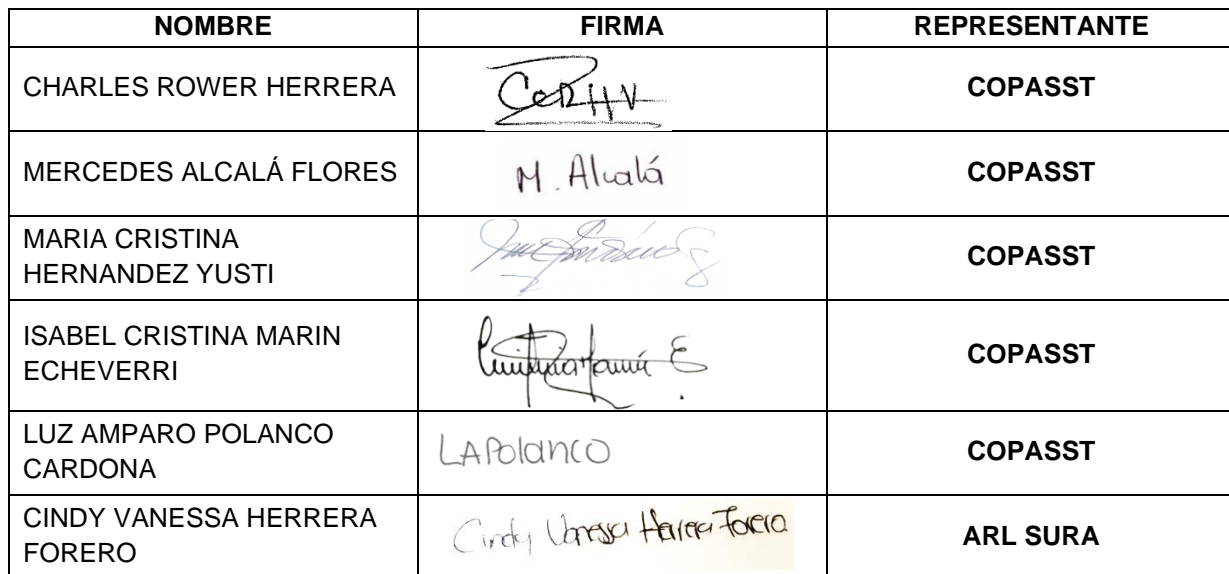 NOMBRE FIRMA REPRESENTANTE
CHARLES ROWER HERRERA CORHV COPASST
MERCEDES ALCALÁ FLORES M. Alcalá COPASST
MARIA CRISTINA
HERNANDEZ YUSTI
COPASST
ISABEL CRISTINA MARIN
ECHEVERRI
COPASST
LUZ AMPARO POLANCO
CARDONA
LAPolanco COPASST
CINDY VANESSA HERRERA
FORERO
Cindy Vanessa Herrera Forero ARL SURA